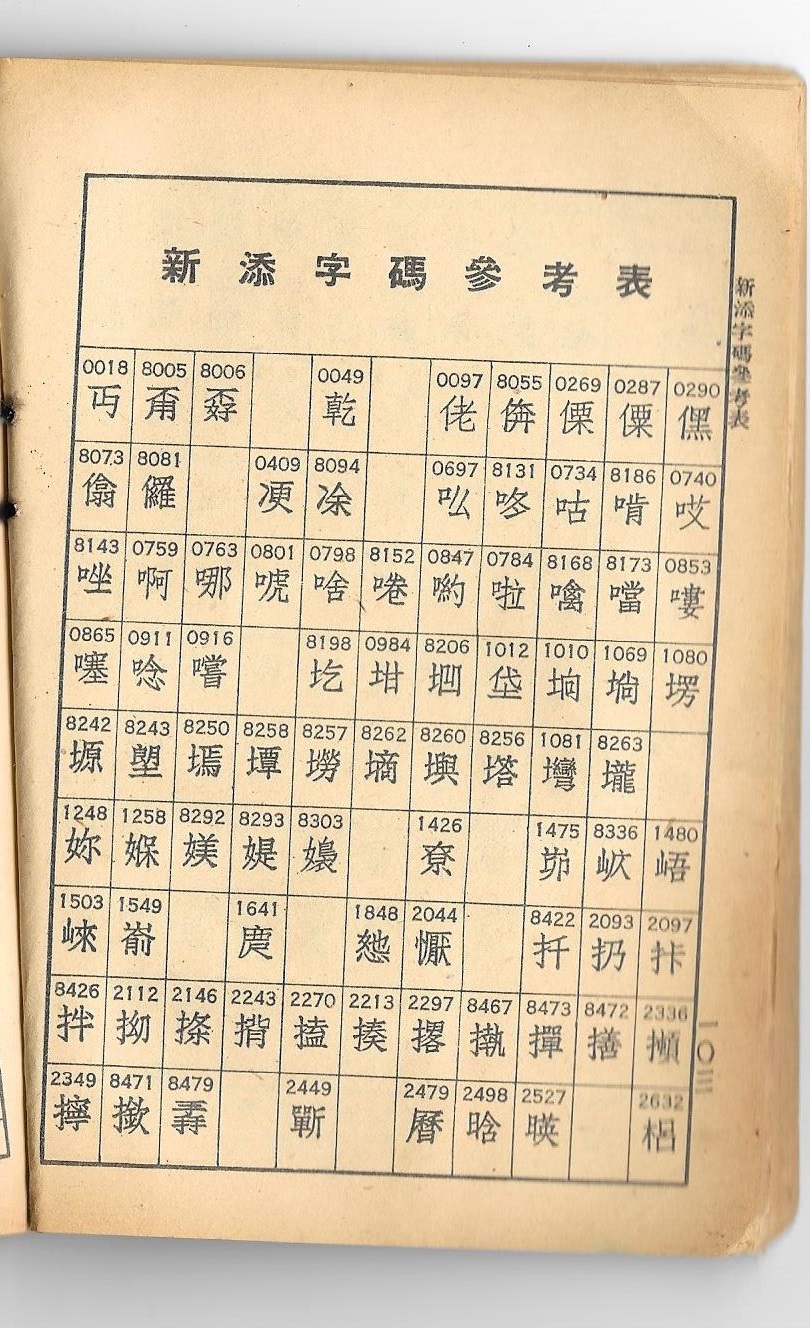 新添字碼參考表
0018 8005 8006 0049 0097 8055 0269 0287 0290
丏 甭 孬 乾 佬 傡 傈 僳 㒓
8073 8081 0409 8094 0697 8131 0734 8186 0740
儩 儸 凂 凃 吆 咚 咕 啃 哎
8143 0759 0763 0801 0798 8152 0847 0784 8168 8173 0853
唑 啊 哪 唬 啥 啳 喲 啦 噙 噹 嘍
0865 0911 0916 8198 0984 8206 1012 1010 1069 1080
噻 唸 嚐 圪 坩 垇 垡 垧 塄
8242 8243 8250 8258 8257 8262 8260 8256 1081 8263
塬 塱 墕 墰 塝 墑 塔 壪 壠
1248 1258 8292 8293 8303 1426 1475 8336 1480
妳 媬 媄 媞 嬝 尞 峁 峧 峿
1503 1549 1641 1848 2044 8422 2093 2097
崍 嵛 懨 扦 扔 拤
8426 2112 2146 2243 2270 2213 2297 8467 8473 8472 2336
拌 拗 搽 揹 搕 揍 撂 撣
2349 8471 8479 2449 2479 2498 2527 2632
擰 撳 斵 曆 晗 暎 梠
新添字碼參考表
一〇三